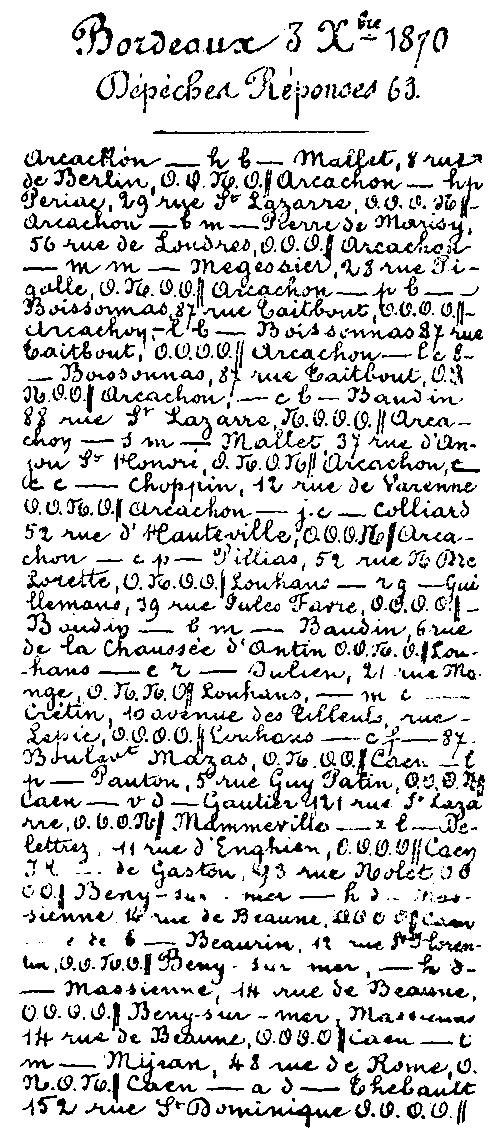 Bordeaux 3 Xbre 1870
Dépêches Réponses 63.
Arcachon — h b — Mallet, 8 rue
de Berlin, O.O.N.O.‖ Arcachon — h p
Periac, 29 rue St Lazarre, O.O.O.N‖-
Arcachon — b m — Pierre de Marisy,
56 rue de Londres, O.O.O.‖ Arcachon
— m m — Megessier, 28 rue Pi-
galle, O.N.O.O‖ Arcachon — p b —
Boissonnas, 87 rue Taitbout, O.O.O.O‖-
Arcachon, - l b — Boissonnas 87 rue
Taitbout, O.O.O.O‖ Arcachon — l c b-
— Boissonnas, 87 rue Taitbout, O.
N.O.O‖ Arcachon, — c b — Baudin
88 rue St Lazarre, N.O.O.O.‖ Arca-
chon — s m — Mallet, 37 rue d'An-
jou St Honoré, O.N.O.N‖ Arcachon, c
c — Choppin, 12 rue de Varenne
O.O.N.O‖ Arcachon — j.c — Colliard
52 rue d'Hauteville, O.O.O.N‖ Arca-
chon — c p — Pillias, 52 rue N Dme
Lorette, O.N.O.O‖ Louhans — z g — Gui
llemans, 39 rue Jules Favre, O.O.O.O‖-
Baudin — b m — Baudin, 6 rue
de la Chaussée d'Antin O.O.N.O.‖ Lou-
hans — c z — Julien, 21 rue Mo-
nge, O.N.N.O‖ Louhans, — m c —
Crétin, 10 avenue des Tilleuls, rue-
Lepic, O.O.O.O.‖ Louhans — c f — 87-
Boulevt Mazas, O.N.O.O‖ Caen — l
p — Pauton, 5 rue Guy Patin, O.O.O.N‖
Caen — v d — Gautier 121 rue St Laza
rre, O.O.O.N‖ Mammeville — x l — De-
lettrez, 11 rue d'Enghien, O.O.O.O‖ Caen
— de Gaston, 43 rue Nolet O O
O O‖ Beny-sur-mer — h d — Mas-
sienne 14 rue de Beaune, O O O‖ Caen
— c de b — Beaurin, 12 rue St Floren-
tin, O.O.N.O‖ Beny-sur mer, — h d-
— Massienne, 14 rue de Beaune,
O.O.O.O.‖ Beny-sur-mer, Massienne
14 rue de Beaune, O.O.O.O‖ Caen — t
m — Mijran, 48 rue de Rome, O.
N.O.N.‖ Caen — a d — Thebault
152 rue St Dominique O.O.O.O.‖